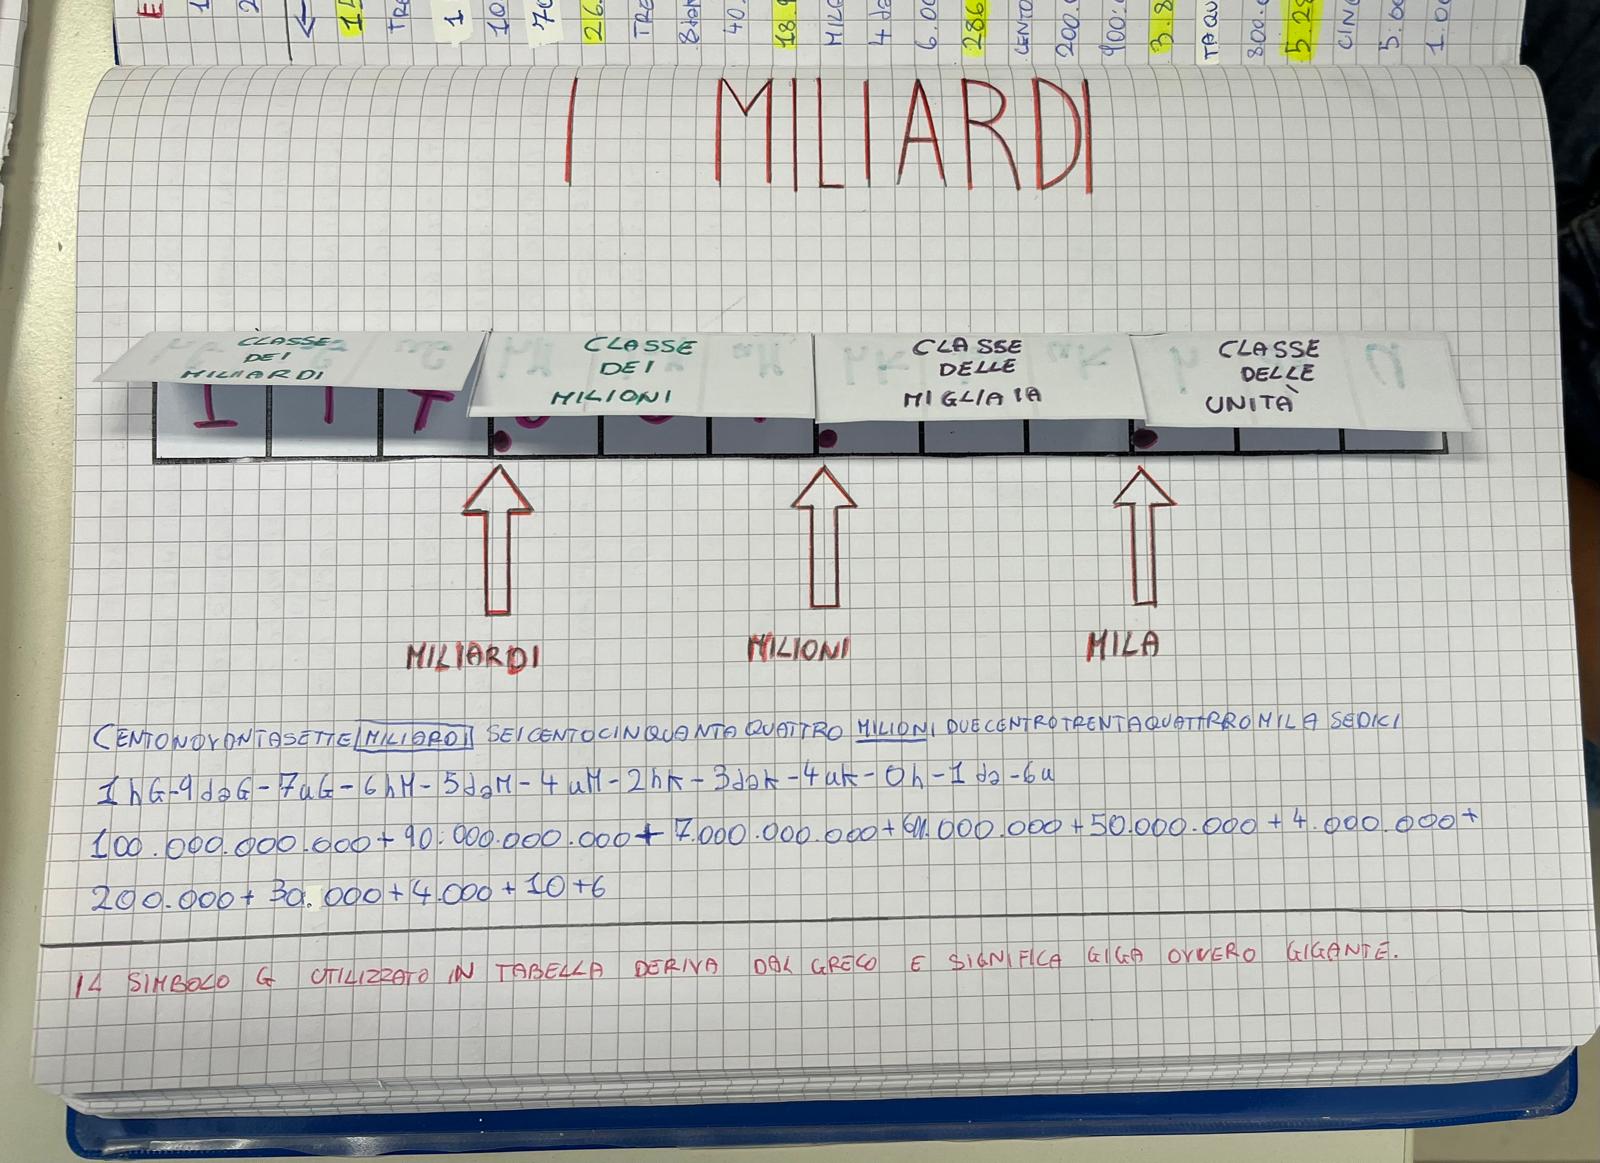 I MILIARDI
CLASSE DEI MILIARDI
CLASSE DEI MILIONI
CLASSE DELLE MIGLIAIA
CLASSE DELLE UNITÀ
MILIARDI MILIONI MILA
CENTONOVONTASETTE MILIARDI SEICENTOCINQUANTA QUATTRO MILIONI DUECENTROTRENTAQUATTRROMILA SEDICI
1hG-9daG-7uG-6hM-5daM-4uM-2hk-3dak-4uk-0h-1da-6u
100.000.000.000+90.000.000.000+7.000.000.000+ .000.000+50.000.000+4.000.000+
200.000+30.000+4.000+10+6
IL SIMBOLO G UTILIZZATO IN TABELLA DERIVA DAL GRECO E SIGNIFICA GIGA OVVERO GIGANTE.